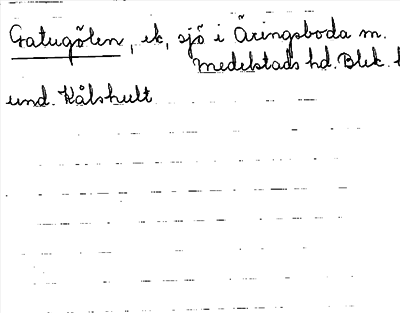 Gatugölen, ek, sjö i Äringsboda m.
Medelstads hd. Blek.
und. Kålshult